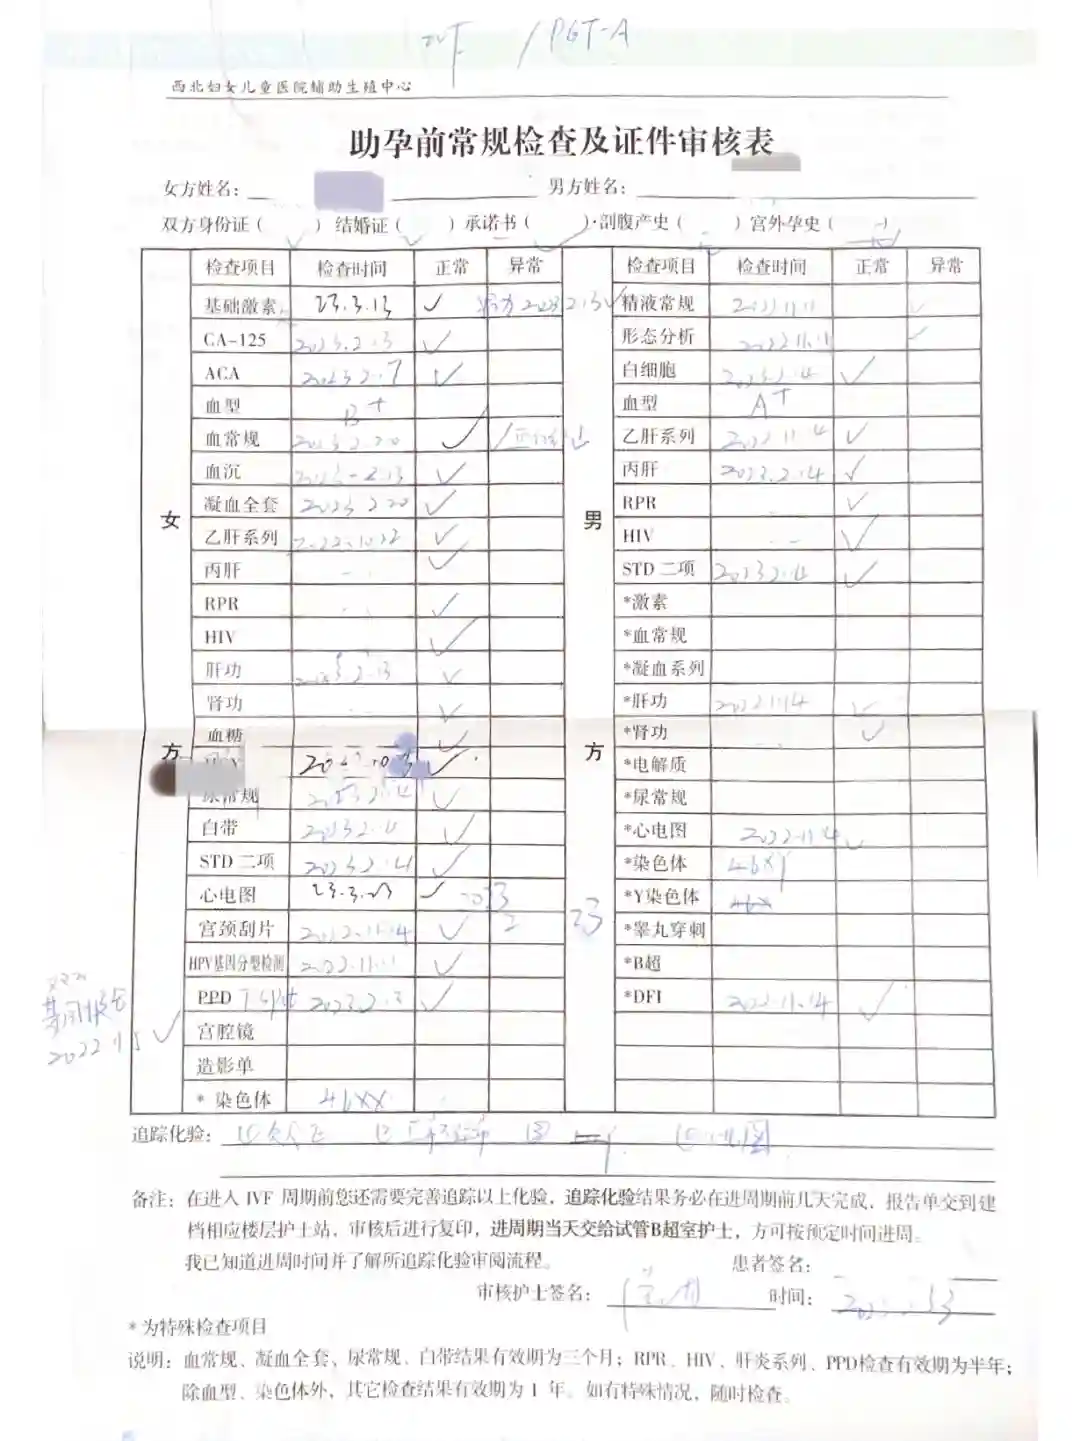 /PGT-A
西北妇女儿童医院辅助生殖中心
助孕前常规检查及证件审核表
女方姓名: 男方姓名:
双方身份证( ) 结婚证( ) 承诺书( )·剖腹产史( ) 宫外孕史( )
检查项目 检查时间 正常 异常 检查项目 检查时间 正常 异常
女方
男方
基础激素 23.3.13 ✓ 精液常规 2022.11.11 ✓
CA-125 2023.2.13 ✓ 形态分析 2022.11.11 ✓
ACA 2023.2.7 ✓ 白细胞 2023.2.14 ✓
血型 B+ 血型 A+
血常规 2023.2.20 ✓ 乙肝系列 2022.11.14 ✓
血沉 2023-2.13 ✓ 丙肝 2023.2.14 ✓
凝血全套 2023.2.20 ✓ RPR ✓
乙肝系列 2022.10.22 ✓ HIV ✓
丙肝 ✓ STD 二项 2023.2.14 ✓
RPR ✓ *激素
HIV ✓ *血常规
肝功 2023.2.13 ✓ *凝血系列
肾功 ✓ *肝功 2022.11.14 ✓
血糖 ✓ *肾功 ✓
✓ *电解质
尿常规 ✓ *尿常规
白带 ✓ *心电图 2022.11.14 ✓
STD 二项 2023.2.14 ✓ *染色体 46XY
心电图 23.3.23 ✓ 2023 *Y染色体
宫颈刮片 2022.11.14 ✓ *睾丸穿刺
HPV基因分型检测 2022.11.11 ✓ *B超
PPD 2023.2.13 ✓ *DFI 2022.11.14 ✓
宫腔镜
造影单
* 染色体 46XX
2022.11.5 ✓
追踪化验:
备注: 在进入 IVF 周期前您还需要完善追踪以上化验, 追踪化验结果务必在进周期前几天完成, 报告单交到建
档相应楼层护士站, 审核后进行复印, 进周期当天交给试管B超室护士, 方可按预定时间进周。
我已知道进周时间并了解所追踪化验审阅流程。 患者签名:
审核护士签名: 时间:
*为特殊检查项目
说明: 血常规、凝血全套、尿常规、白带结果有效期为三个月; RPR、HIV、肝炎系列、PPD检查有效期为半年;
除血型、染色体外, 其它检查结果有效期为 1 年。如有特殊情况, 随时检查。